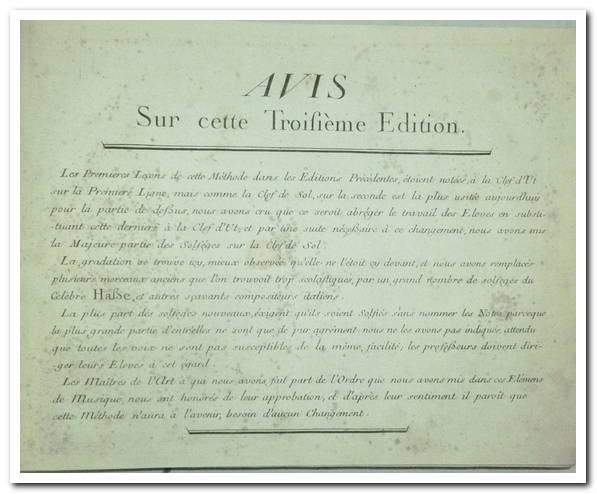 AVIS
Sur cette Troisième Edition.
Les Premieres Leçons de cette Méthode dans les Editions Précédentes, étoient notées, à la Clef d'Ut
sur la Premiere Ligne, mais comme la Clef de Sol, sur la seconde est la plus usitée aujourdhuy
pour la partie de dessus, nous avons cru que ce seroit abréger le travail des Eleves en substi-
tuant cette derniere à la Clef d'Ut, et par une suite nécessaire à ce changement, nous avons mis
la Majeure partie des Solfèges sur la Clef de Sol.
La gradation se trouve icy, mieux observée qu'elle ne l'étoit cy devant, et nous avons remplacés
plusieurs morceaux anciens que l'on trouvoit trop scolastiques, par un grand nombre de solfeges du
Célèbre Hasse, et autres sçavants compositeurs italiens.
La plus part des solfeges nouveaux, éxigent qu'ils soient Solfiés sans nommer les Notes parceque
la plus grande partie d'entr'elles ne sont que de pur agrément: nous ne les avons pas indiqués, attendu
que toutes les voix ne sont pas susceptibles de la même, facilité; les professeurs doivent diri-
ger leurs Eleves à cet égard.
Les Maîtres de l'Art à qui nous avons, fait part de l'Ordre que nous avons mis dans ces Elémens
de Musique, nous ont honorés de leur approbation, et d'après leur sentiment il paroît que
cette Méthode n'aura à l'avenir, besoin d'aucun Changement.